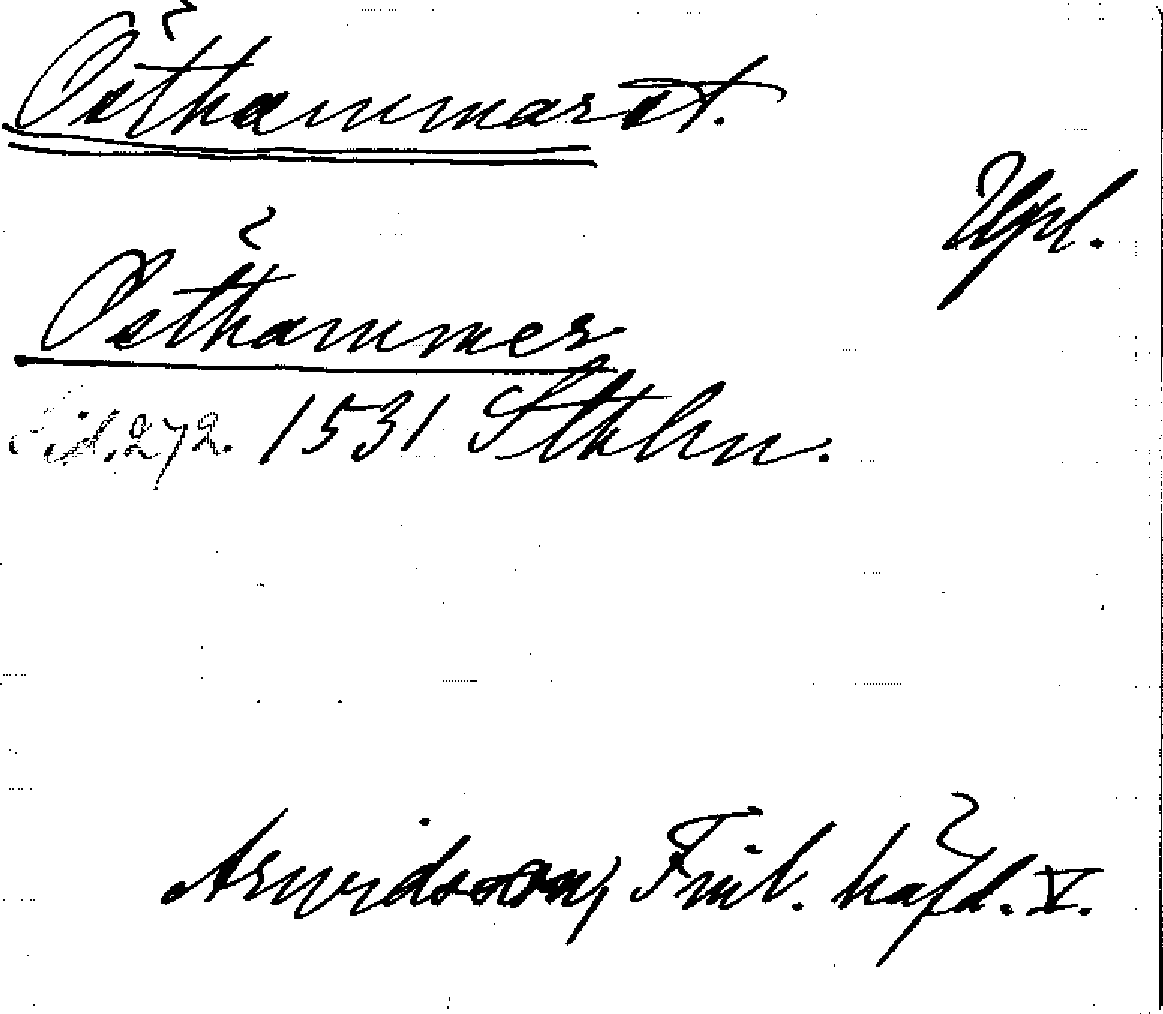 Östhammar st.
Upl.
Östhammer
Sid. 272. 1531 Sthlm.
Arwidsson, Frib. häfd. V.